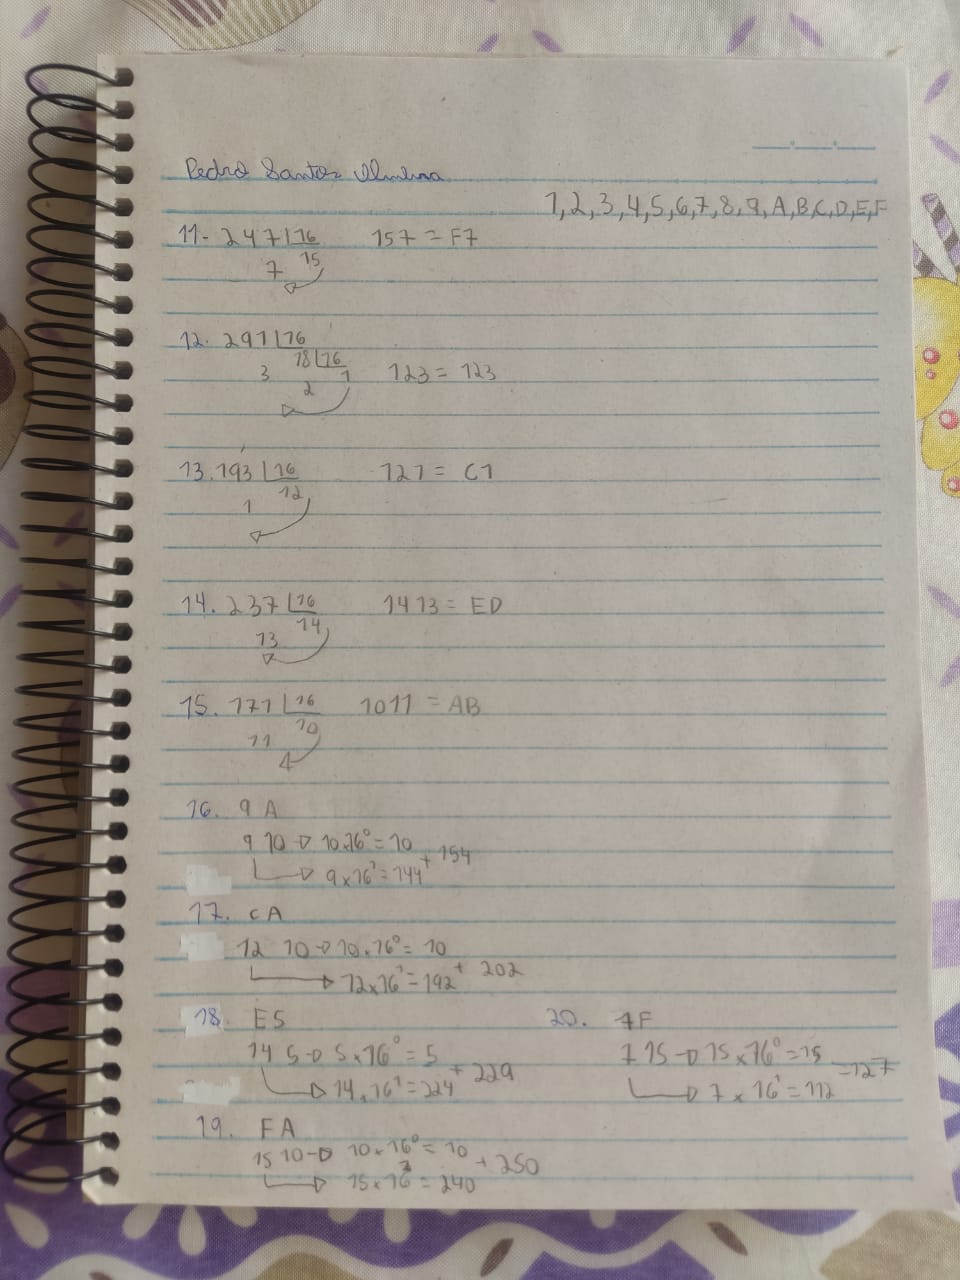 Pedro Santos Oliveira
1,2,3,4,5,6,7,8,9,A,B,C,D,E,F
11- 247 16 157 = F7
7 15
12. 291 16
18 16
3 2 1 123 = 123
13. 193 16 121 = C1
1 12
14. 237 16 1413 = ED
13 14
15. 171 16 1011 = AB
11 10
16. 9 A
9 10 → 10.16⁰ = 10
→ 9 x 16¹ = 144 + 154
17. CA
12 10 → 10.16⁰ = 10
→ 12 x 16¹ = 192 + 202
18. E5
14 5 → 5 x 16⁰ = 5
→ 14 . 16¹ = 224 + 229
19. FA
15 10 → 10 x 16⁰ = 10
→ 15 x 16 = 240 + 250
20. 7F
7 15 → 15 x 16⁰ = 15
→ 7 x 16¹ = 112 = 127